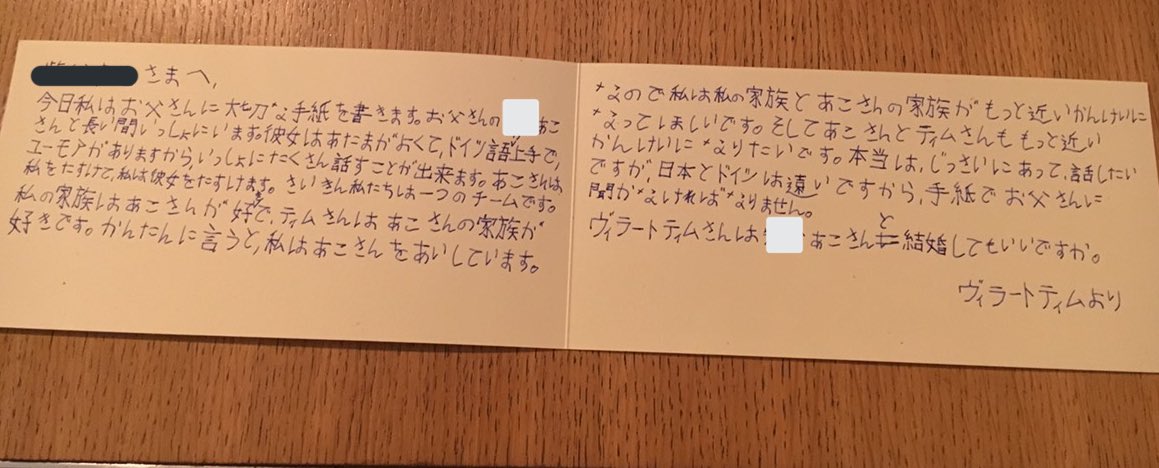 さまへ,
今日私はお父さんに大切な手紙を書きます。お父さんの あこ
さんと長い間いっしょにいます。彼女はあたまがよくて,ドイツ語が上手で,
ユーモアがありますから,いっしょにたくさん話すことが出来ます。あこさんは
私をたすけて,私は彼女をたすけます。さいきん私たちは一つのチームです。
私の家族はあこさんが好きで,ティムさんはあこさんの家族が
好きです。かんたんに言うと,私はあこさんをあいしています。
なので私は私の家族とあこさんの家族がもっと近いかんけいに
なってほしいです。そしてあこさんとティムさんももっと近い
かんけいになりたいです。本当は,じっさいにあって,話したい
ですが,日本とドイツは遠いですから,手紙でお父さんに
聞かなければなりません。
ヴィラートティムさんは あこさんと結婚してもいいですか。
ヴィラートティムより